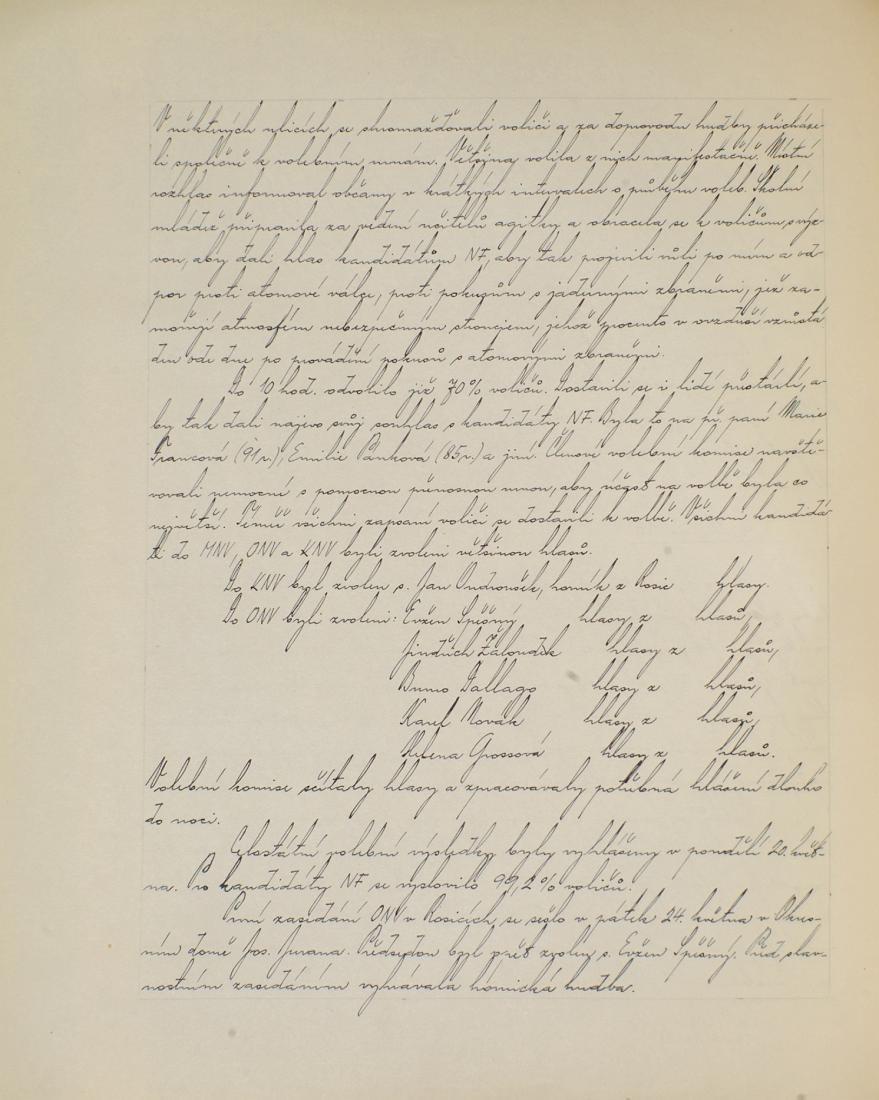 V některých ulicích se shromažďovali voliči a za doprovodu hudby přicháze-
li společně k volebním urnám. Většina volila z nich manifestačně. Místní
rozhlas informoval občany v krátkých intervalech o průběhu voleb. Školní
mládež připravila za vedení učitelů agitky a obracela se k voličům s výz-
vou, aby dali hlas kandidátům NF, aby tak projevili vůli po míru a od-
por proti atomové válce, proti pokusům s jadernými zbraněmi, jež za-
mořují atmosféru nebezpečným stronciem, jehož procento v ovzduší vzrůstá
den ode dne po provádění pokusů s atomovými zbraněmi.
Do 10 hod. odvolilo již 70% voličů. Dostavili se i lidé přestárlí, a-
by tak dali najevo svůj souhlas s kandidáty NF. Byla to na př. paní Marie
Francová (91 r.), Emilie Pánková (85 r.) a jiní. Členové volební komise navště-
vovali nemocné s pomocnou přenosnou urnou, aby účast na volbě byla co
největší. Téměř všichni zapsaní voliči se dostavili k volbě. Všichni kandidá-
ti do MNV, ONV a KNV byli zvoleni většinou hlasů.
Do KNV byl zvolen s. Jan Ondroušek, horník z Rosic hlasy.
Do ONV byli zvoleni: Evžen Spěšný hlasy z hlasů,
Jindřich Žaloudek hlasy z hlasů,
Bruno Dallago hlasy z hlasů,
Karel Novák hlasy z hlasů,
Helena Grossová hlasy z hlasů.
Volební komise sčítaly hlasy a zpracovávaly potřebná hlášení dlouho
do noci.
Celostátní volební výsledky byly vyhlášeny v pondělí 20. květ-
na. Pro kandidáty NF se vyslovilo 99,2% voličů.
První zasedání ONV v Rosicích se sešlo v pátek 24. května v Okres-
ním domě Jos. Jurana. Předsedou byl opět zvolen s. Evžen Spěšný. Před slav-
nostním zasedáním vyhrávala hornická hudba.